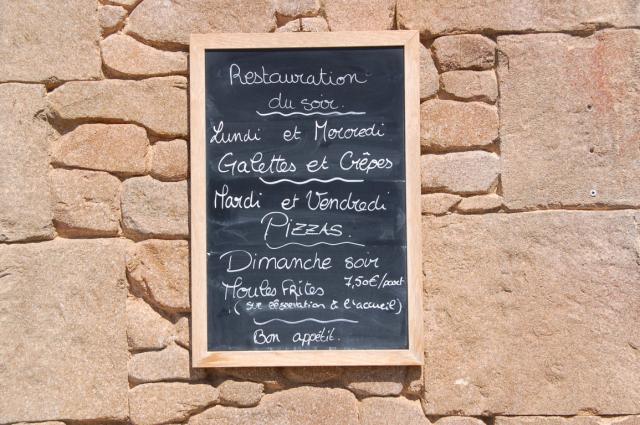 Restauration
du soir.
Lundi et Mercredi
Galettes et Crêpes
Mardi et Vendredi
PIZZAS.
Dimanche soir
Moules FRites 7,50€/part
(sur réservation à l'accueil)
Bon appétit.